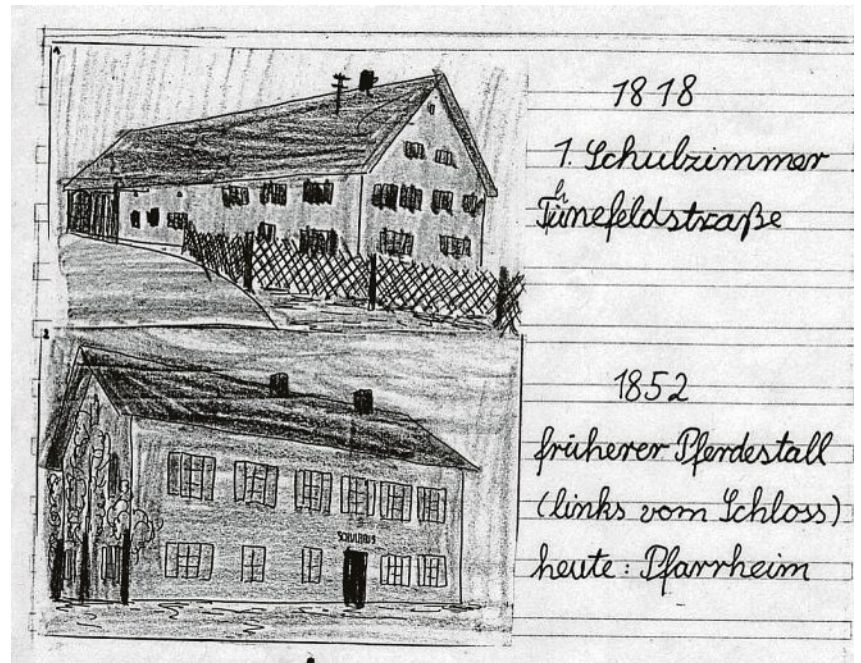 1
1818
1. Schulzimmer
Tünefeldstraße
2
1852
früherer Pferdestall
(links vom Schloss)
heute: Pfarrheim
SCHULHAUS